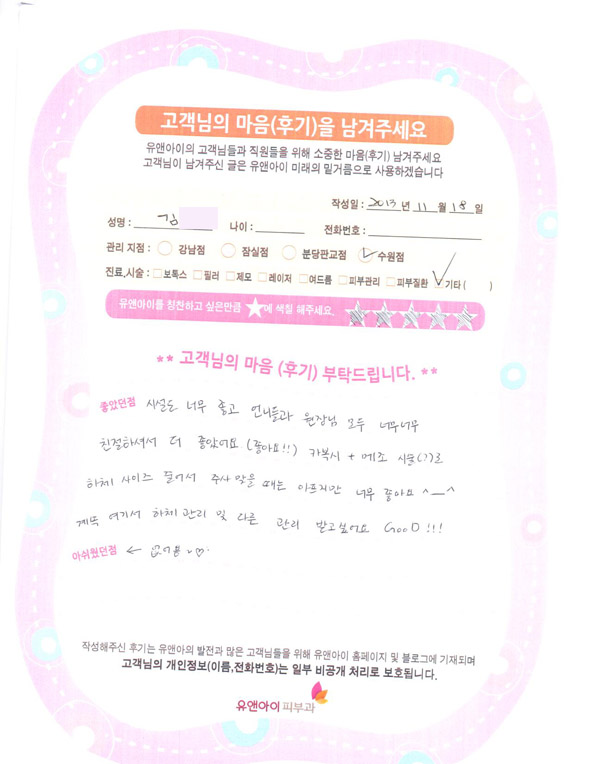 고객님의 마음(후기)을 남겨주세요
유앤아이의 고객님들과 직원들을 위해 소중한 마음(후기) 남겨주세요
고객님이 남겨주신 글은 유앤아이 미래의 밑거름으로 사용하겠습니다
작성일 : 2013 년 11 월 18 일
성명 : 김 나이 : 전화번호 :
관리 지점 : 강남점 잠실점 분당판교점 수원점
진료,시술 : 보톡스 필러 제모 레이저 여드름 피부관리 피부질환 기타 ( )
유앤아이를 칭찬하고 싶은만큼 ★에 색칠 해주세요.
** 고객님의 마음 (후기) 부탁드립니다. **
좋았던점 시설도 너무 좋고 언니들과 원장님 모두 너무너무
친절하셔서 더 좋았어요 (좋아요!!) 카복시 + 메조 시술(?)로
하체 사이즈 줄어서 주사 맞을 때는 아프지만 너무 좋아요 ^__^
계속 여기서 하체 관리 및 다른 관리 받고싶어요 GooD !!!
아쉬웠던점 ← 없어용
작성해주신 후기는 유앤아의 발전과 많은 고객님들을 위해 유앤아이 홈페이지 및 블로그에 기재되며
고객님의 개인정보(이름,전화번호)는 일부 비공개 처리로 보호됩니다.
유앤아이 피부과